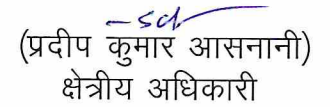 -sd-
(प्रदीप कुमार आसनानी)
क्षेत्रीय अधिकारी